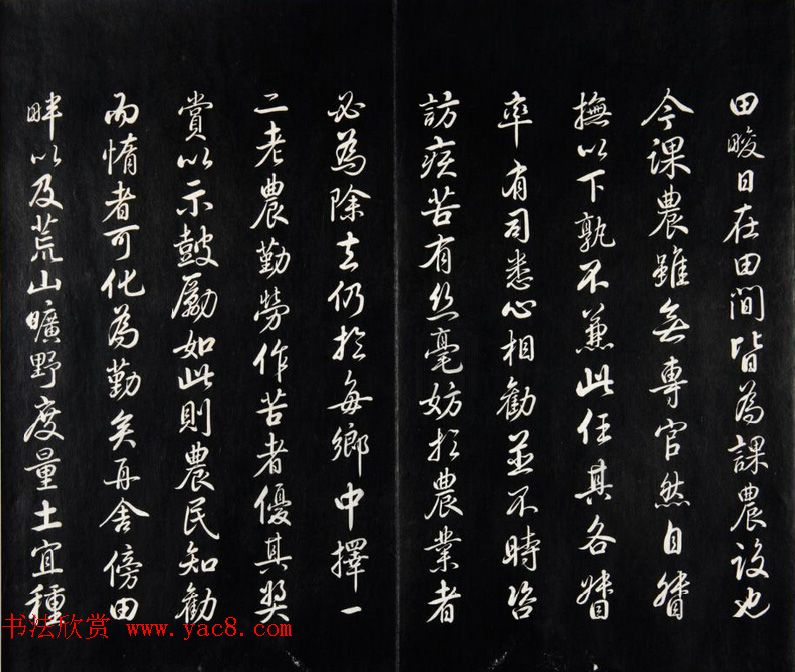 田畯日在田間皆為課農設也
今課農雖無專官然自督
撫以下孰不兼此任其各督
率有司悉心相勸並不時咨
訪疾苦有丝毫妨於農業者
必為除去仍於每鄉中擇一
二老農勤勞作苦者優其奬
賞以示鼓勵如此則農民知勸
而惰者可化為勤矣再舍傍田
畔以及荒山曠野度量土宜種
书法欣赏 www.yac8.com